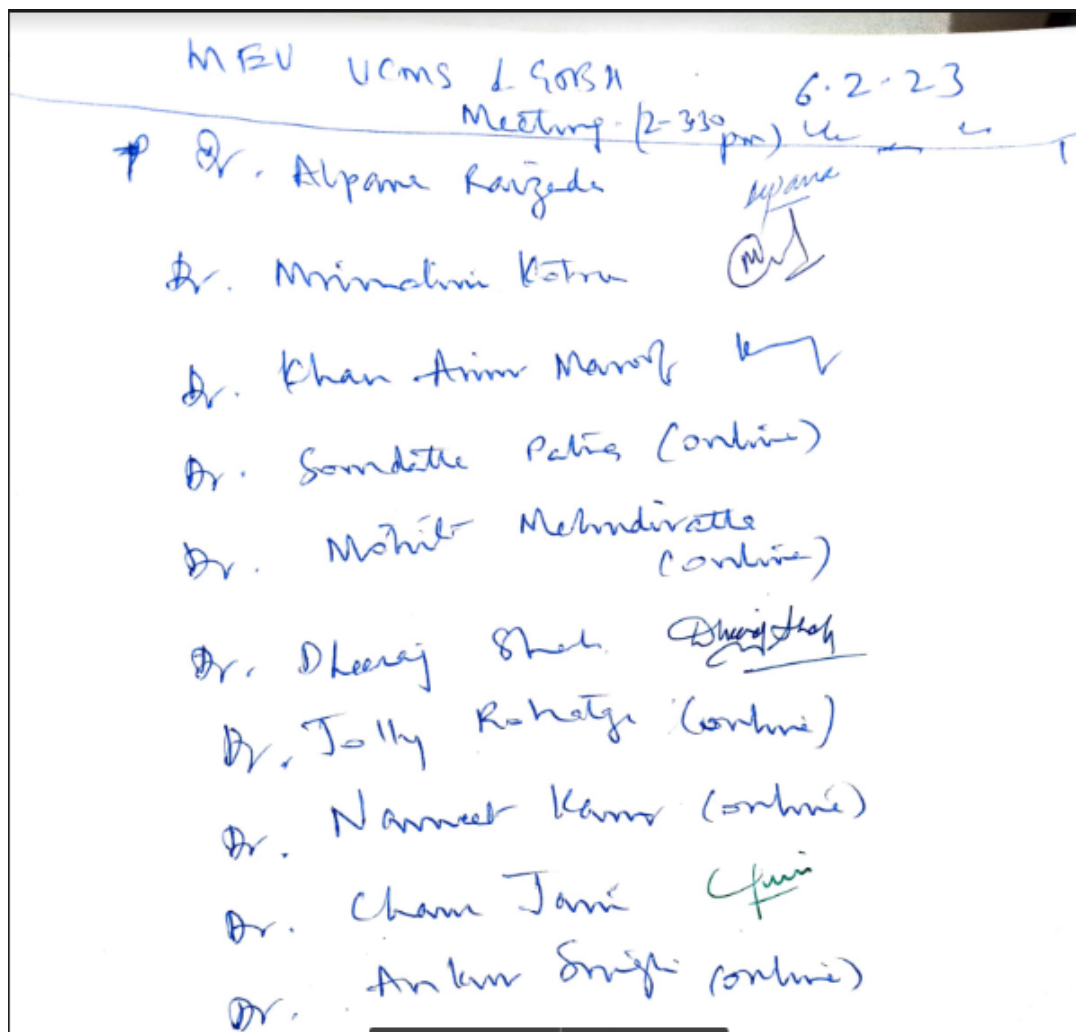 MEU UCMS & GTBH 6.2.23
Meeting (2-330 pm)
Dr. Alpana Raizada Alpana
Dr. Mrinalini Kotru
Dr. Khan Amir Maroof
Dr. Somdatta Patra (online)
Dr. Mohit Mehndiratta
(online)
Dr. Dheeraj Shah Dheeraj Shah
Dr. Jolly Rohatgi (online)
Dr. Navneet Kaur (online)
Dr. Charu Jain
Dr. Ankur Singh (online)